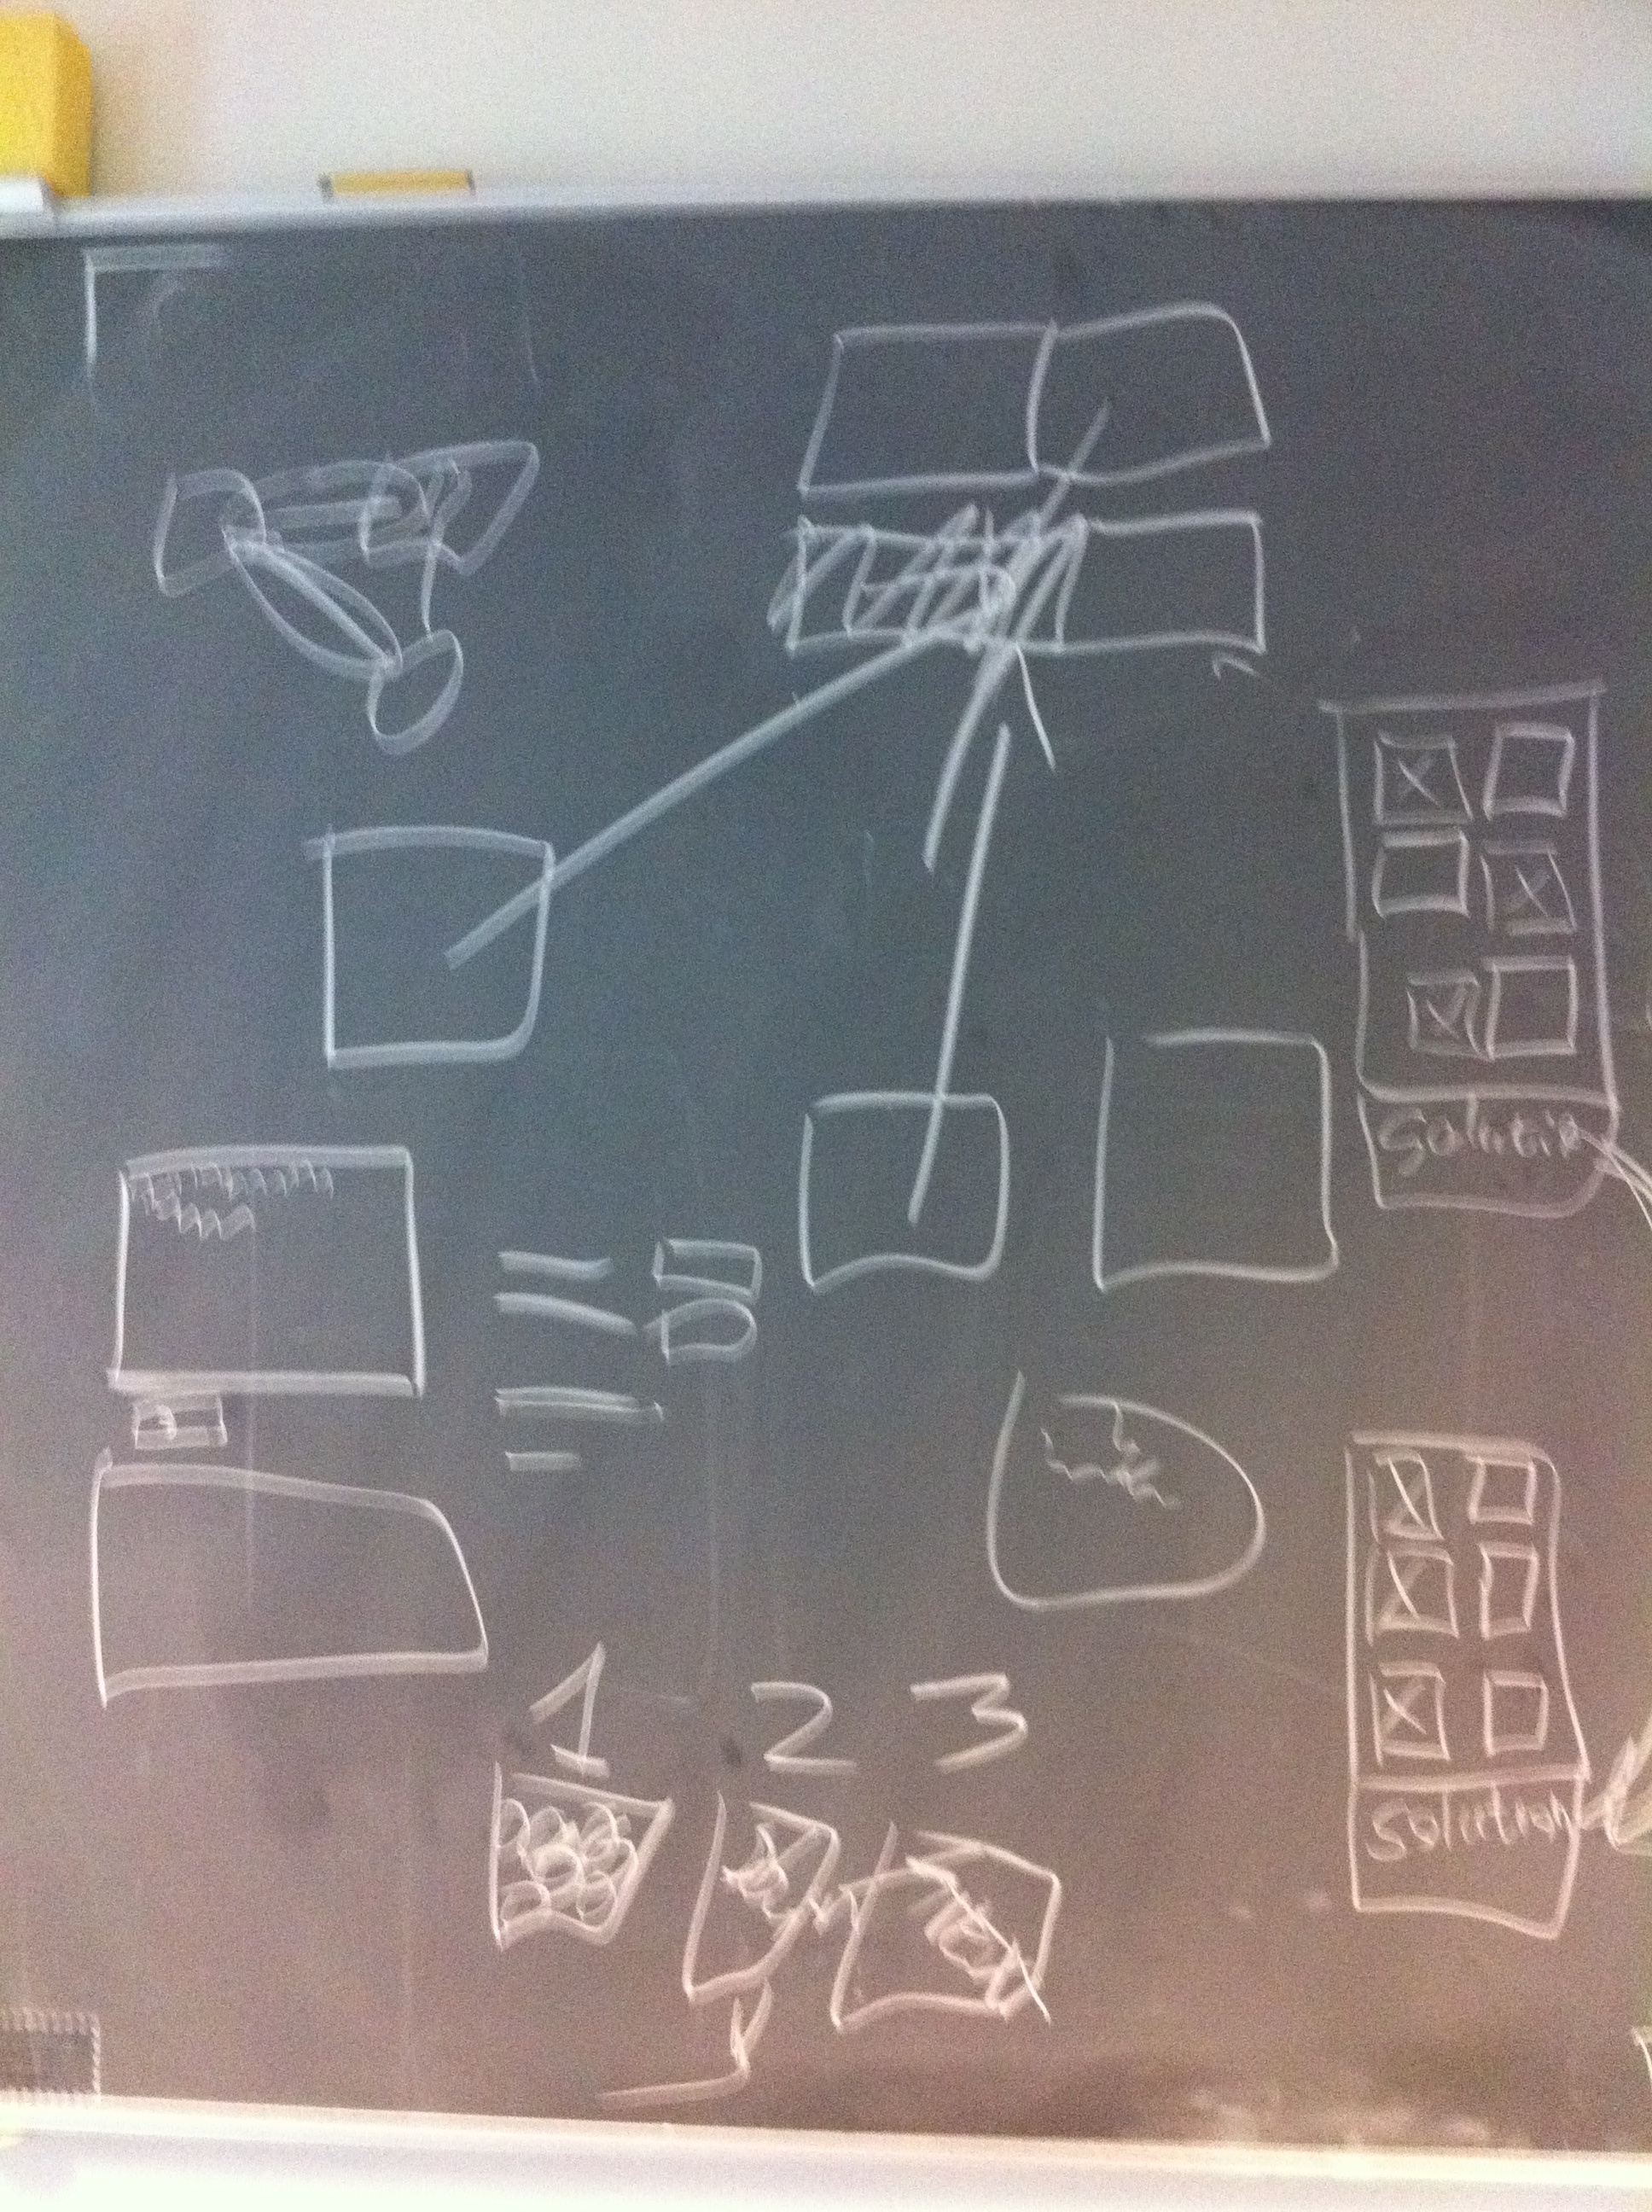 Solution
1 2 3
Solution